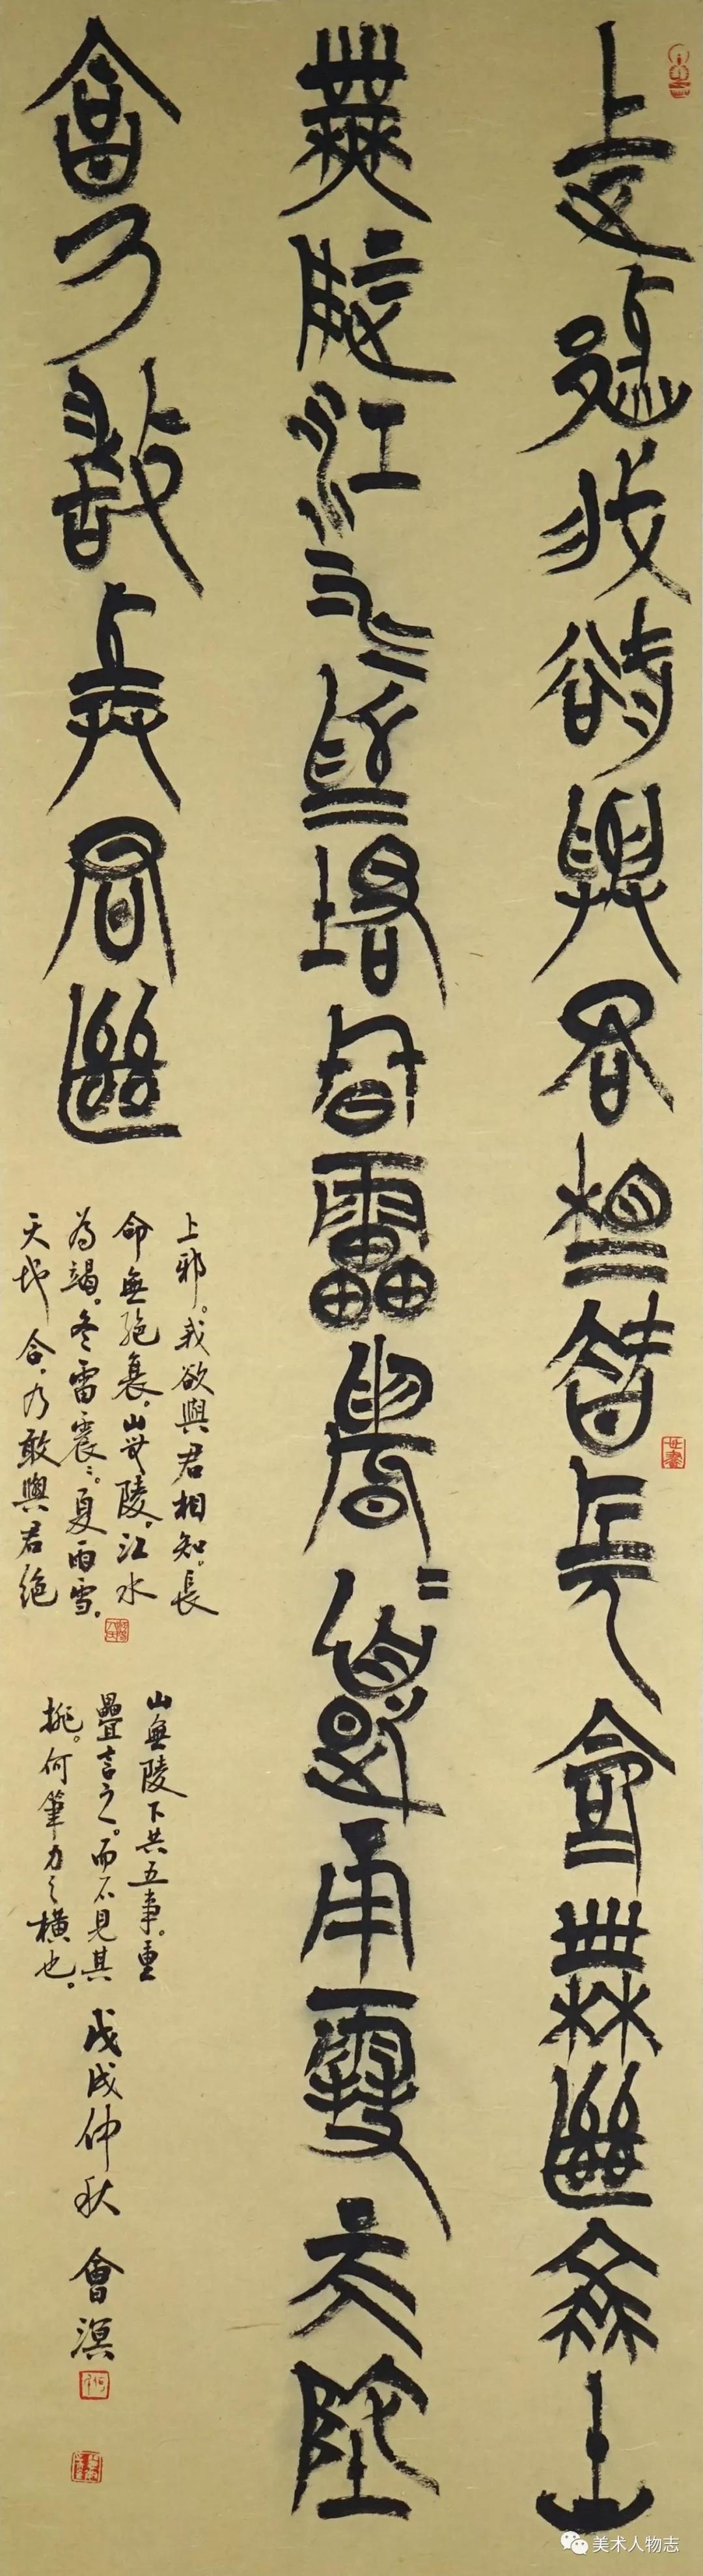 上邪我欲與君相知長命無絕衰山
無陵江水為竭冬雷震〻夏雨雪天地
合乃敢與君絕
上邪。我欲與君相知。長
命無絕衰。山無陵。江水
為竭。冬雷震〻。夏雨雪。
天地合。乃敢與君絕
山無陵下共五事。重
疊言之。而不見其
排。何筆力之橫也。
戊戌仲秋 會溟
美术人物志